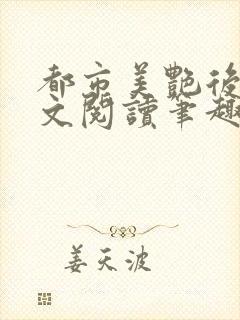 都市美艷後
文閱讀筆趣
姜天波